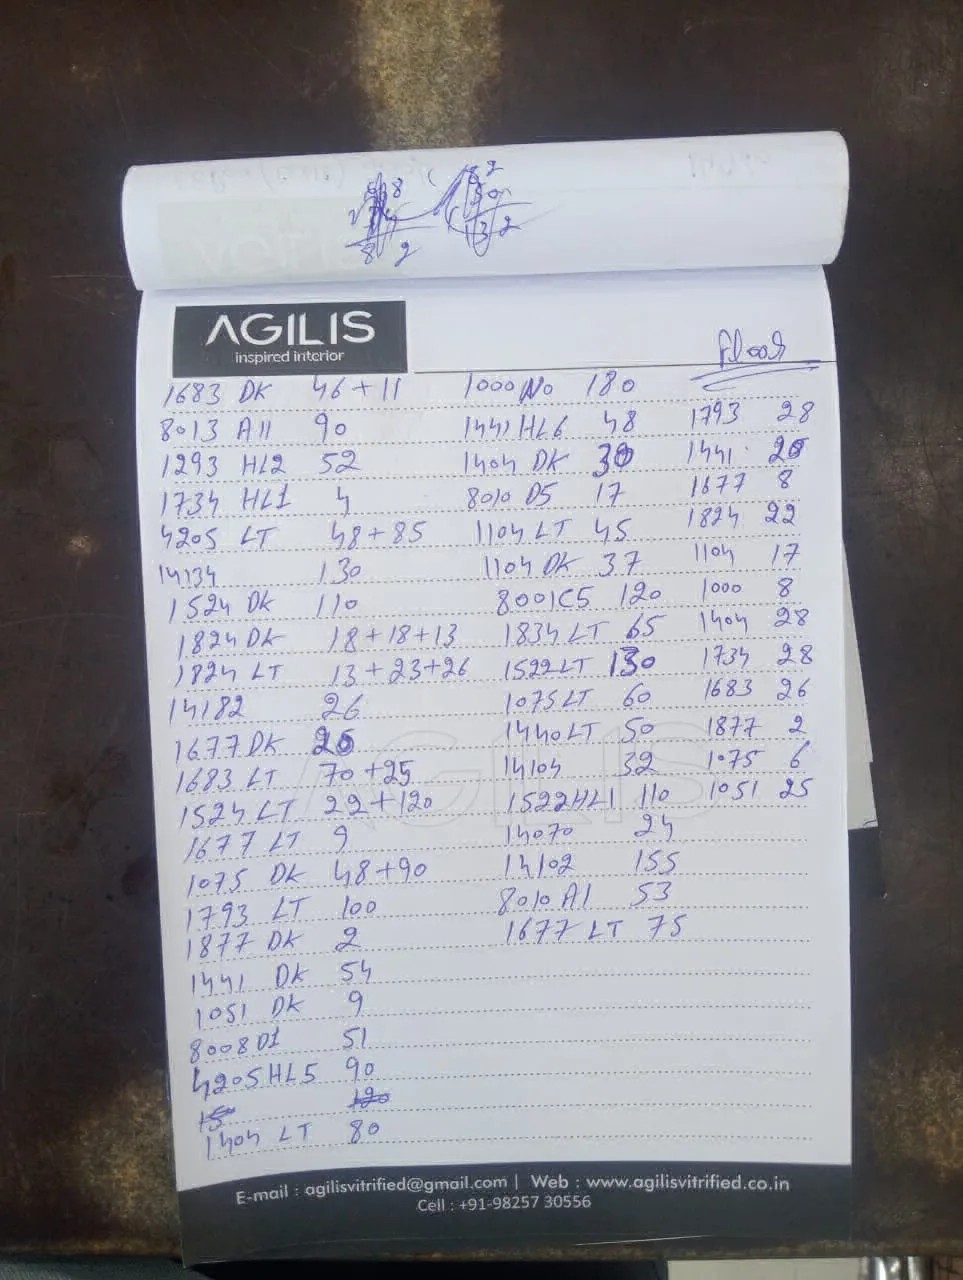 AGILIS
inspired interior
Floor
1683 DK 46+11
8013 A11 90
1293 HL2 52
1734 HL1 4
4205 LT 48+85
14134 130
1524 DK 110
1824 DK 18+18+13
1824 LT 13+23+26
14182 26
1677 DK
1683 LT 70+25
1524 LT 22+120
1677 LT 9
1075 DK 48+90
1793 LT 100
1877 DK 2
1441 DK 54
1051 DK 9
8008 D1 51
4205 HL5 90
15 120
1404 LT 80
1000 No 180
1441 HL6 48
1404 DK 30
8010 D5 17
1104 LT 45
1104 DK 37
8001C5 120
1834 LT 65
1522 LT 130
1075 LT 60
1440 LT 50
14104 32
1522HL1 110
14070 24
14102 155
8010 A1 53
1677 LT 75
1793 28
1441
1677 8
1824 22
1104 17
1000 8
1404 28
1734 28
1683 26
1877 2
1075 6
1051 25
E-mail : agilisvitrified@gmail.com | Web : www.agilisvitrified.co.in
Cell : +91-98257 30556